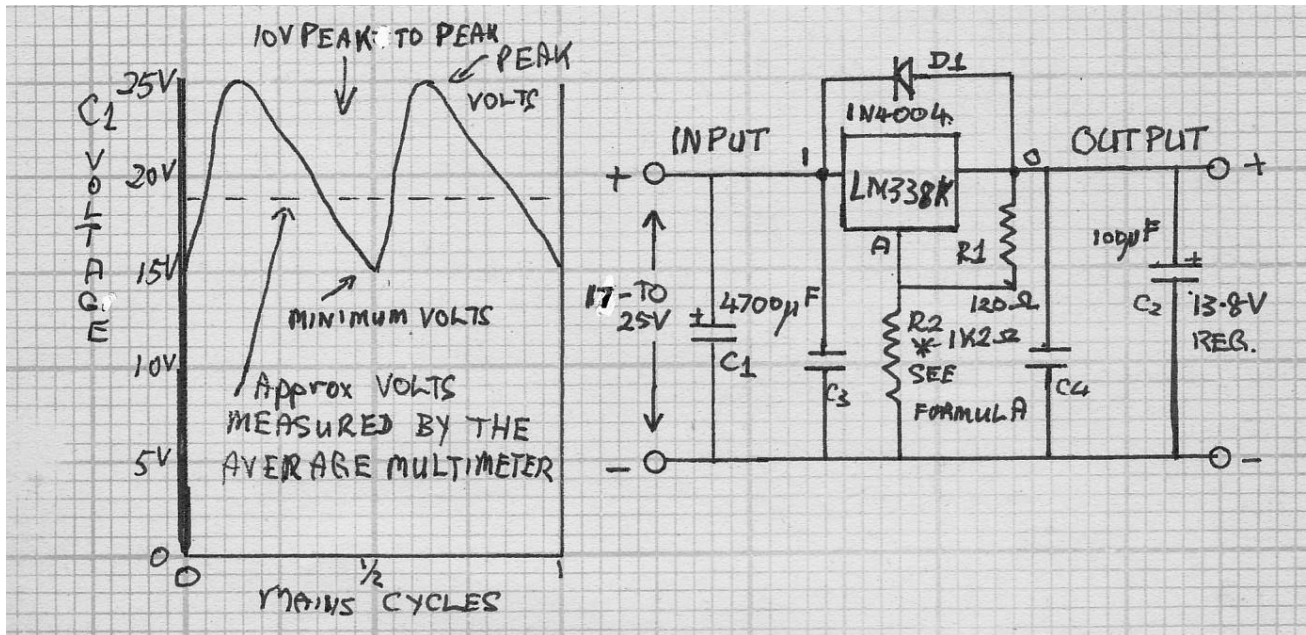 10V PEAK TO PEAK
PEAK
VOLTS
25V
20V
15V
10V
5V
0
C1 VOLTAGE
MINIMUM VOLTS
Approx VOLTS
MEASURED BY THE
AVERAGE MULTIMETER
0
1/2
1
MAINS CYCLES
D1
1N4004.
INPUT
1
LM338K
O
OUTPUT
+
+
A
R1
120Ω
17-TO
25V
+
4700µF
C1
C3
R2
* 1K2Ω
SEE
FORMULA
C4
100µF
+
C2
13.8V
REG.
-
-